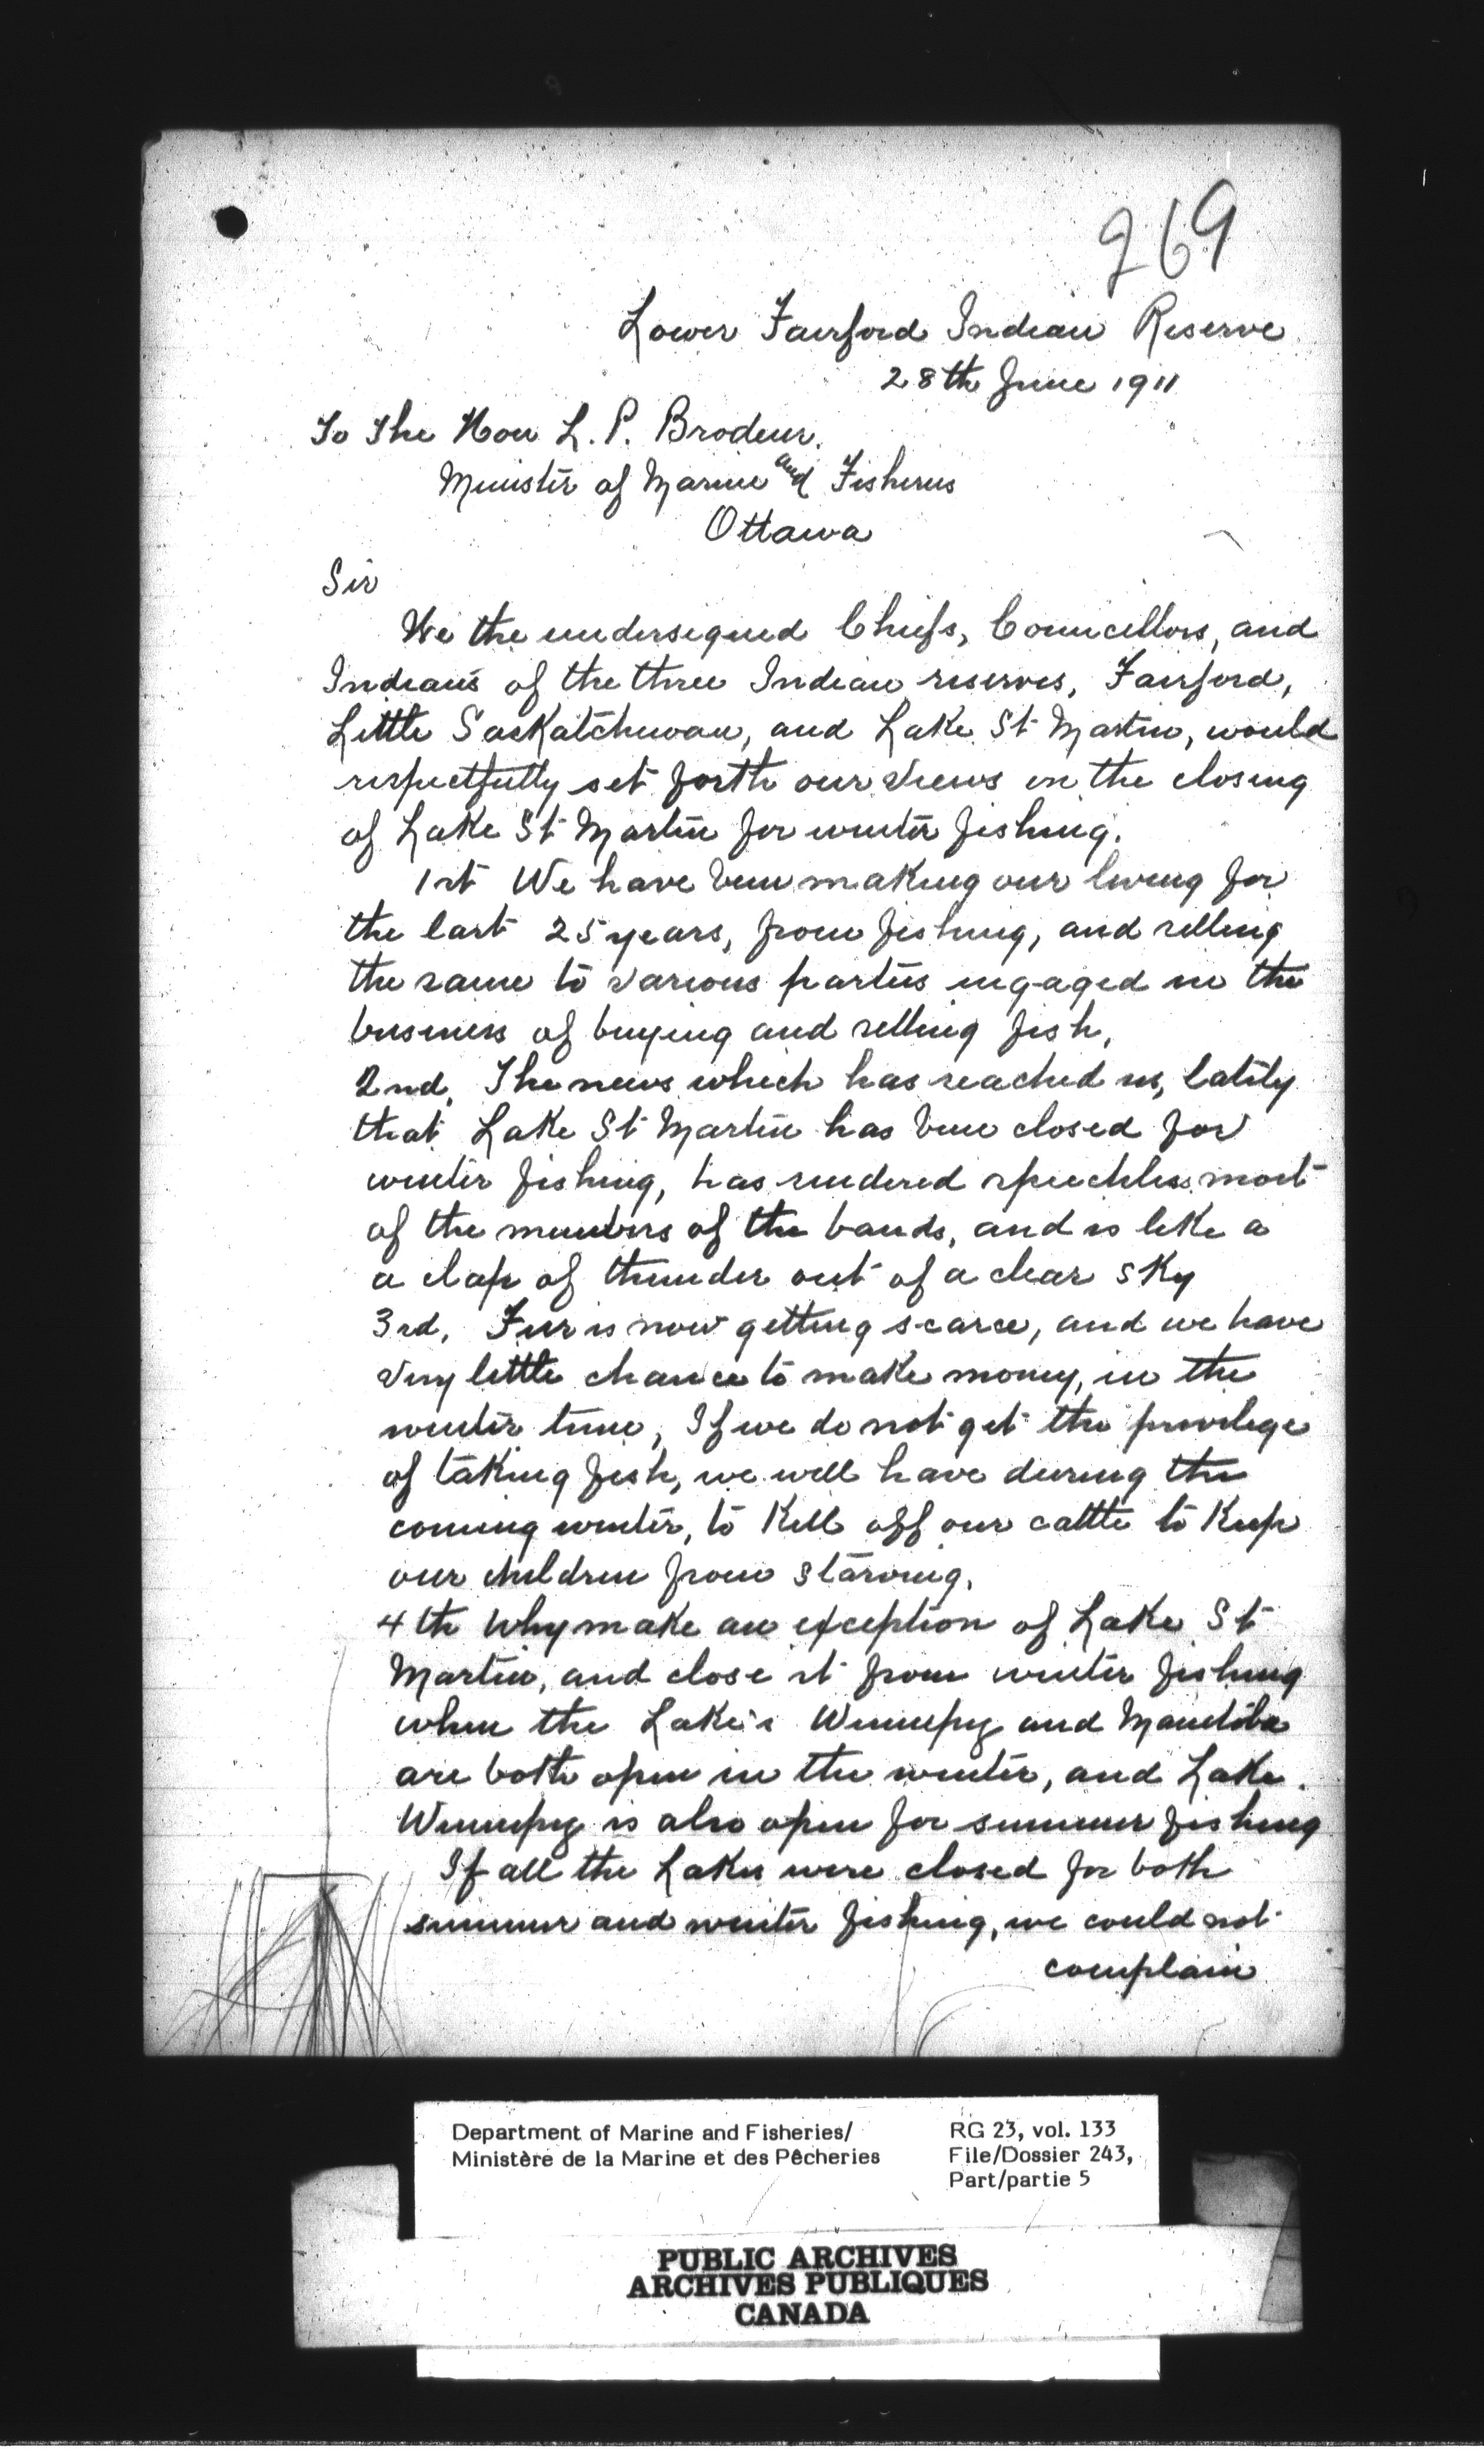 269
Lower Fairford Indian Reserve
28th June 1911
To The Hon L. P. Brodeur.
Minister of Marine and Fisheries
Ottawa
Sir
We the undersigned Chiefs, Councillors, and
Indians of the three Indian reserves, Fairford,
Little Saskatchewan, and Lake St Martin, would
respectfully set forth our views on the closing
of Lake St Martin for winter fishing.
1st We have been making our living for
the last 25 years, from fishing, and selling
the same to various parties engaged in the
business of buying and selling fish,
2nd, The news which has reached us, lately
that Lake St Martin has been closed for
winter fishing, has rendered speechless most
of the members of the bands, and is like a
a clap of thunder out of a clear sky
3rd, Fur is now getting scarce, and we have
very little chance to make money, in the
winter time, If we do not get the privilege
of taking fish, we will have during the
coming winter, to kill off our cattle to keep
our children from starving.
4th Why make an exception of Lake St
Martin, and close it from winter fishing
when the Lake's Winnipeg and Manitoba
are both open in the winter, and Lake.
Winnipeg is also open for summer fishing
If all the Lakes were closed for both
summer and winter fishing, we could not
complain
Department of Marine and Fisheries/
Ministère de la Marine et des Pêcheries
RG 23, vol. 133
File/Dossier 243,
Part/partie 5
PUBLIC ARCHIVES
ARCHIVES PUBLIQUES
CANADA